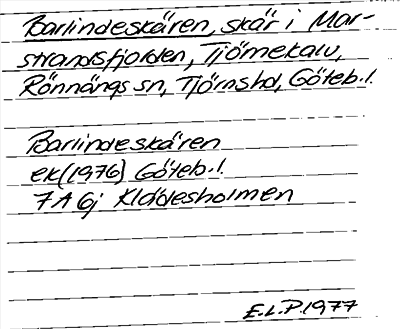 Barlindeskären, skär i Mar-
strandsfjorden, Tjörnekalv,
Rönnängs sn, Tjörnshd, Göteb. l.
Barlindeskären
ek(1976) Göteb. l.
7 A 6j Klädesholmen
E.L.P.1977